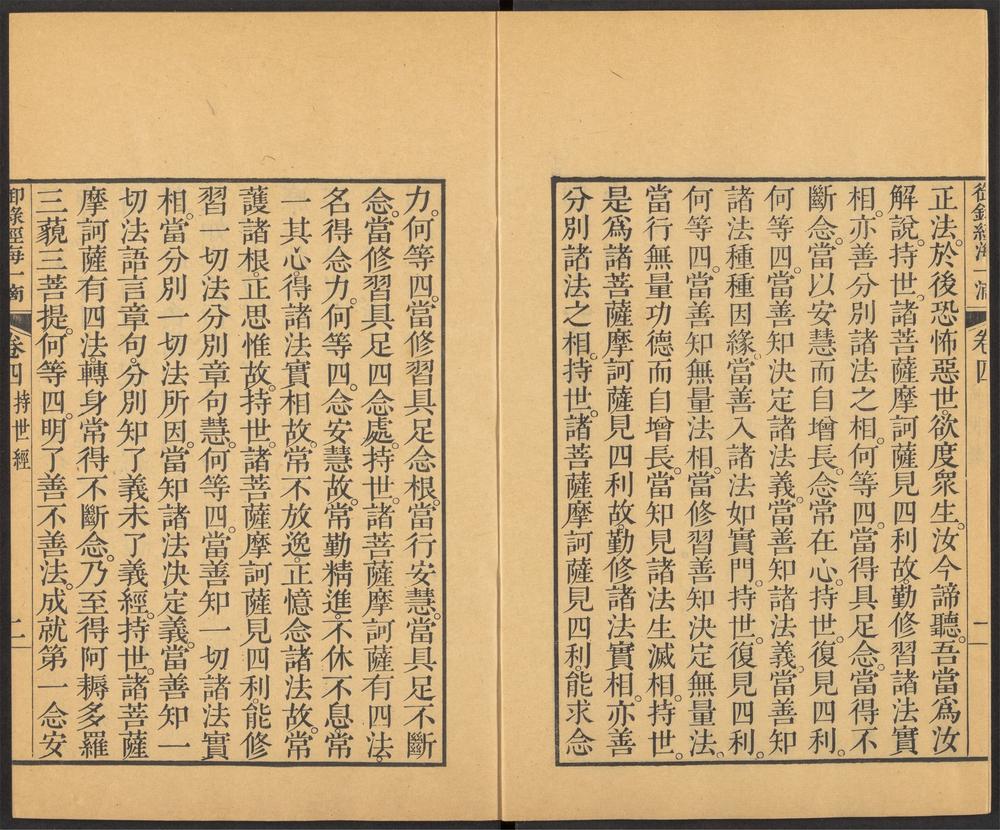 正法。於後恐怖惡世。欲度衆生。汝今諦聽。吾當爲汝
解說。持世。諸菩薩摩訶薩見四利故。勤修習諸法實
相。亦善分別諸法之相。何等四。當得具足念。當得不
斷念。當以安慧而自增長。念常在心。持世。復見四利。
何等四。當善知決定諸法義。當善知諸法義。當善知
諸法種種因緣。當善入諸法如實門。持世。復見四利。
何等四。當善知無量法相。當修習善知決定無量法。
當行無量功德而自增長。當知見諸法生滅相。持世。
是爲諸菩薩摩訶薩見四利故。勤修諸法實相。亦善
分別諸法之相。持世。諸菩薩摩訶薩見四利。能求念
力。何等四。當修習具足念根。當行安慧。當具足不斷
念。當修習具足四念處。持世。諸菩薩摩訶薩有四法。
名得念力。何等四。念安慧故。常勤精進。不休不息。常
一其心。得諸法實相故。常不放逸。正憶念諸法故。常
護諸根。正思惟故。持世。諸菩薩摩訶薩見四利。能修
習一切法分別章句慧。何等四。當善知一切諸法實
相。當分別一切法所因。當知諸法決定義。當善知一
切法語言章句。分別知了義未了義經。持世。諸菩薩
摩訶薩有四法。轉身常得不斷念。乃至得阿耨多羅
三藐三菩提。何等四。明了善不善法。成就第一念安
御錄經海一滴 卷四 持世經 二